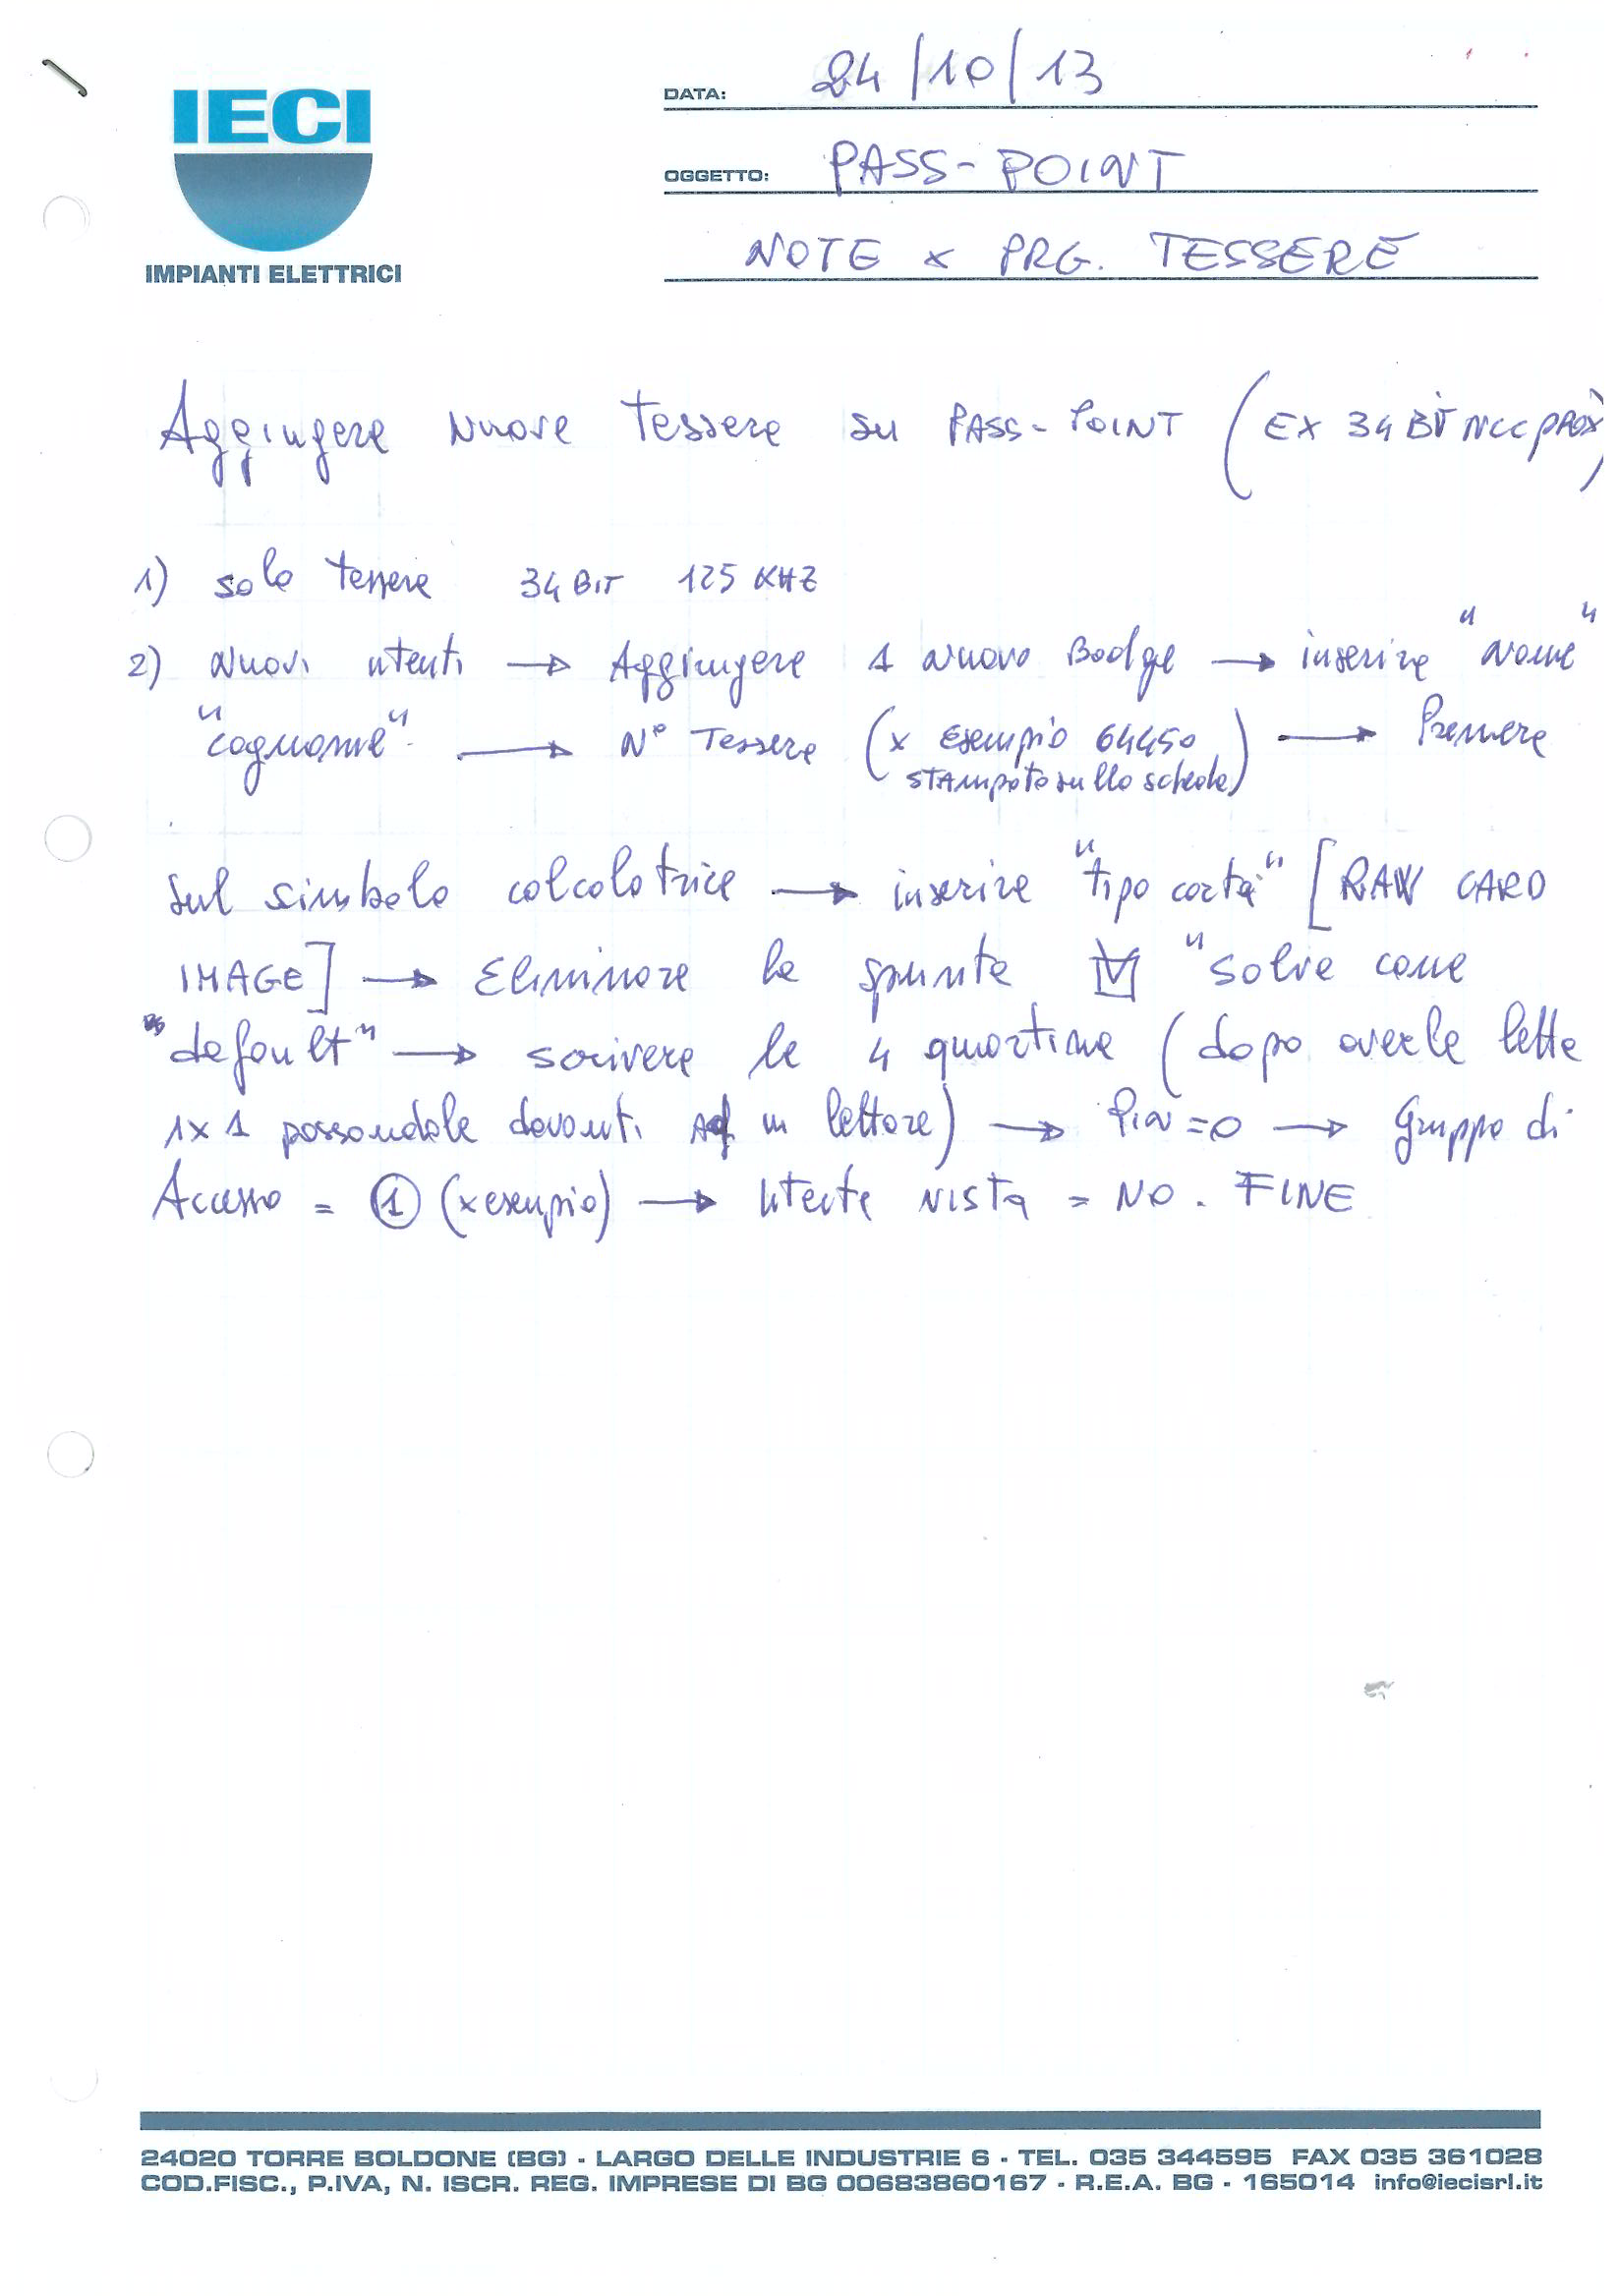 IECI
IMPIANTI ELETTRICI
DATA: 24/10/13
OGGETTO: PASS-POINT
NOTE x PRG. TESSERE
Aggiungere nuove tessere su PASS-POINT (EX 34 BIT NCC PROX)
1) solo tessere 34 BIT 125 KHZ
2) Nuovi utenti → Aggiungere 1 nuovo Badge → inserire "nome"
"cognome" → N° Tessere (x esempio 64450
stampato sulla scheda) → Premere
sul simbolo calcolatrice → inserire "tipo carta" [RAW CARD
IMAGE] → Eliminare la spunta ☑ "salve come
"default" → scrivere le 4 quartine (dopo averle lette
1x1 passandole davanti ad un lettore) → Pin=0 → Gruppo di
Accesso = ① (x esempio) → Utente vista = NO. FINE
24020 TORRE BOLDONE (BG) - LARGO DELLE INDUSTRIE 6 - TEL. 035 344595 FAX 035 361028
COD.FISC., P.IVA, N. ISCR. REG. IMPRESE DI BG 00683860167 - R.E.A. BG - 165014 info@iecisrl.it